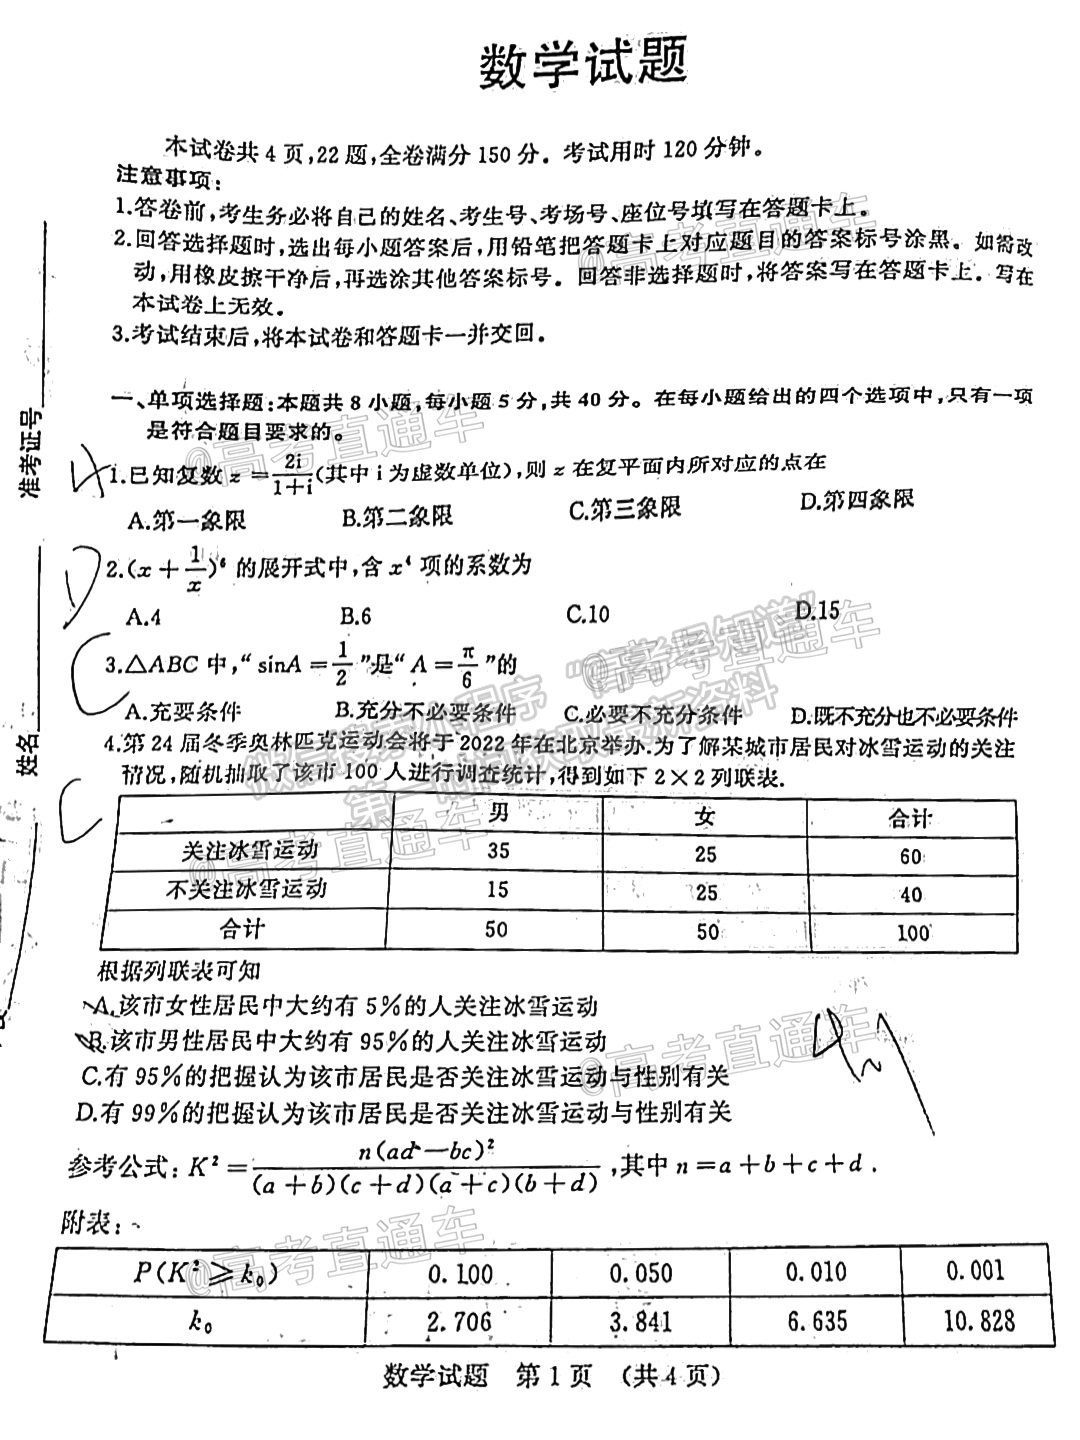 数学试题
本试卷共4页,22题,全卷满分150分。考试用时120分钟。
注意事项:
1.答卷前,考生务必将自己的姓名、考生号、考场号、座位号填写在答题卡上。
2.回答选择题时,选出每小题答案后,用铅笔把答题卡上对应题目的答案标号涂黑。如需改
动,用橡皮擦干净后,再选涂其他答案标号。回答非选择题时,将答案写在答题卡上。写在
本试卷上无效。
3.考试结束后,将本试卷和答题卡一并交回。
准考证号
姓名
一、单项选择题:本题共8小题,每小题5分,共40分。在每小题给出的四个选项中,只有一项
是符合题目要求的。
@高考直通车
A
1.已知复数z=2i/(1+i)(其中i为虚数单位),则z在复平面内所对应的点在
A.第一象限 B.第二象限 C.第三象限 D.第四象限
D
2.(x+1/x)⁶的展开式中,含x⁴项的系数为
A.4 B.6 C.10 D.15
C
3.△ABC中,“sinA=1/2”是“A=π/6”的
A.充要条件 B.充分不必要条件 C.必要不充分条件 D.既不充分也不必要条件
C
4.第24届冬季奥林匹克运动会将于2022年在北京举办.为了解某城市居民对冰雪运动的关注
情况,随机抽取了该市100人进行调查统计,得到如下2×2列联表.
男 女 合计
关注冰雪运动 35 25 60
不关注冰雪运动 15 25 40
合计 50 50 100
根据列联表可知
A.该市女性居民中大约有5%的人关注冰雪运动
B.该市男性居民中大约有95%的人关注冰雪运动
C.有95%的把握认为该市居民是否关注冰雪运动与性别有关
D.有99%的把握认为该市居民是否关注冰雪运动与性别有关
参考公式:K²=n(ad-bc)²/((a+b)(c+d)(a+c)(b+d)),其中n=a+b+c+d.
附表:
P(K²≥k₀) 0.100 0.050 0.010 0.001
k₀ 2.706 3.841 6.635 10.828
数学试题 第1页 (共4页)